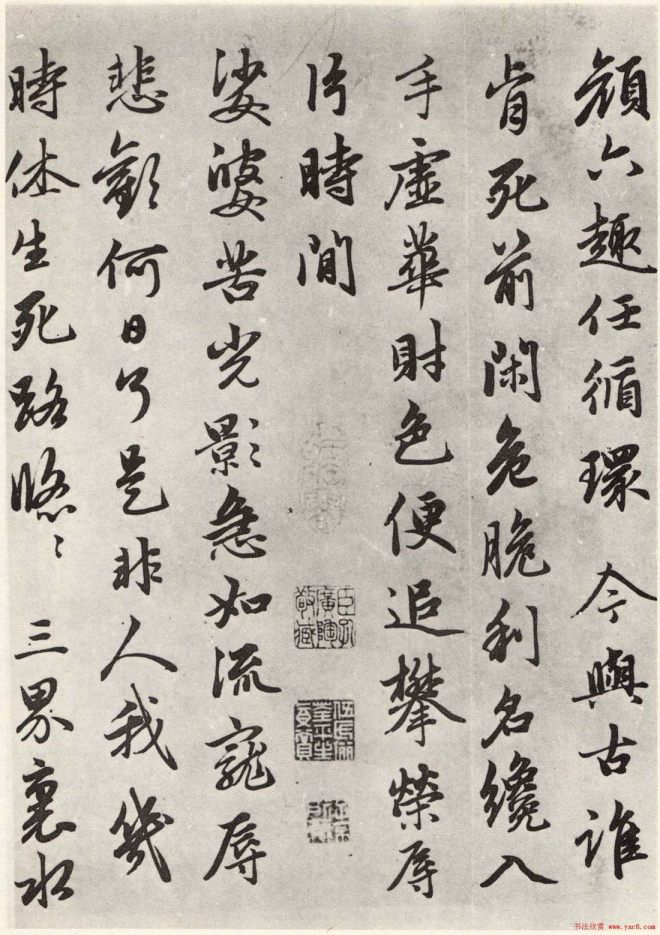 頋六趣任循環 今與古誰
肯死前閑危脆利名纔入
手虛華財色便追攀榮辱
片時間
臣孔廣陶敬藏
娑婆苦光影急如流寵辱
悲歡何日了是非人我幾
時休生死路悠〻 三界裏水
书法欣赏 www.yac8.com